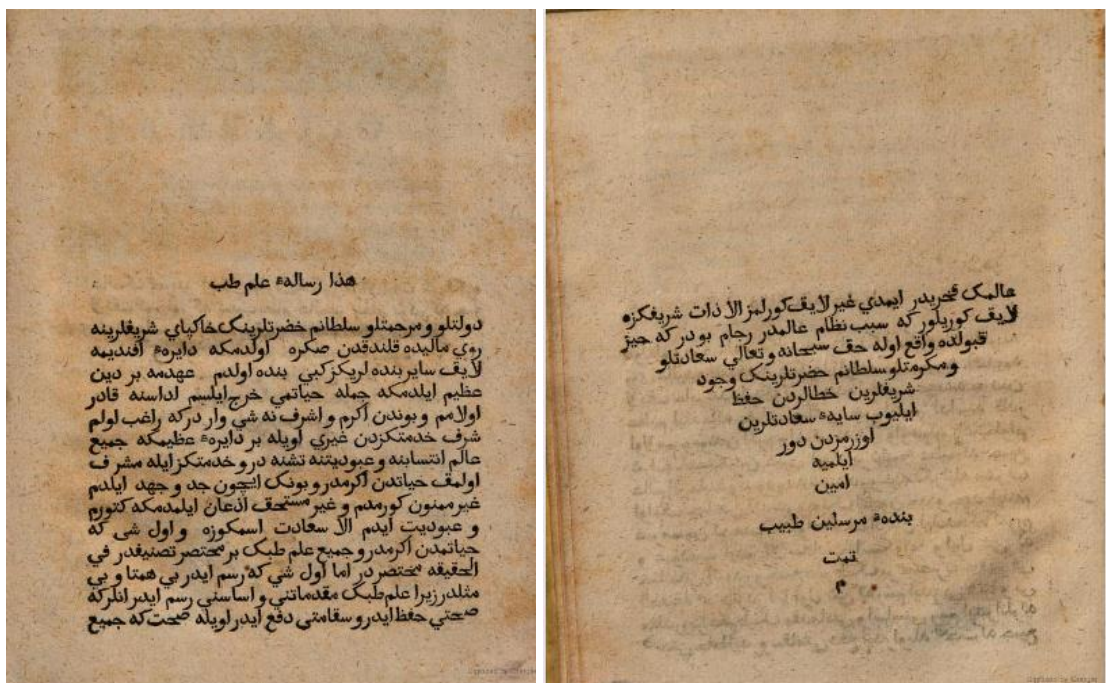 هذا رسالهٴ علم طب
دولتلو و مرحمتلو سلطانم حضرتلرينک خاکپاي شريفلرينه
روي ماليده قلندقدن صکره اولدمکه دايرهٴ افنديمه
لايف ساير بنده لريکز کبي بنده اولدم عهدمه بر دين
عظيم ايلدمکه جمله حياتمي خرج ايلسم اداسنه قادر
اولامم و بوندن اکرم و اشرف نه شي وار در که راغب اولم
شرف خدمتکزدن غيري اويله بر دايرهٴ عظيمکه جميع
عالم انتسابنه و عبوديتنه تشنه در و خدمتکز ايله مشرف
اولمق حياتدن اکرمدر و بونک ايچون جد و جهد ايلدم
غير ممنون کورمدم و غير مستحق اذعان ايلمدمکه کتورم
و عبوديت ايدم الا سعادت اسمکوزه و اول شي که
حياتمدن اکرمدر و جميع علم طبک بر مختصر تصنيفدر في
الحقيقه مختصر در اما اول شي که رسم ايدر بي همتا و بي
مثلدر زيرا علم طبک مقدماتني و اساسني رسم ايدر انلر که
صحتي حفظ ايدر و سقامتي دفع ايدر اويله صحت که جميع
عالمک فخريدر ايمدي غير لايف کورلمز الا ذات شريفکزه
لايف کوزيلور که سبب نظام عالمدر رجام بودر که حيز
قبولده واقع اوله حق سبحانه و تعالي سعادتلو
و مکرمتلو سلطانم حضرتلرينک وجود
شريفلرين خطالردن حفظ
ايليوب سايهٴ سعادتلرين
اوزرمزدن دور
ايلميه
امين
بندهٴ مرسلين طبيب
تمت
م